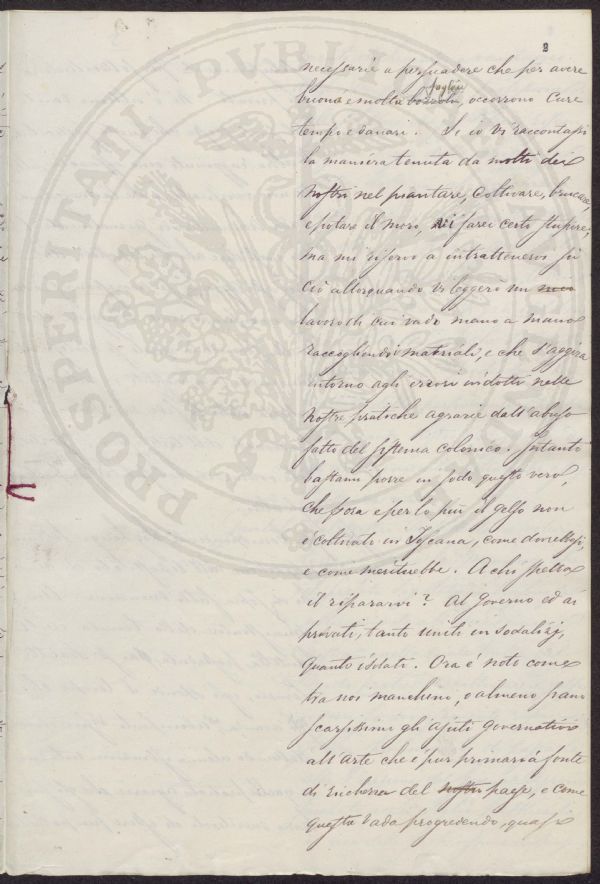 8
necessarie a persuadere che per avere
foglia
buona e molta bozzoli, occorrono cure
tempo e danari. Se io vi raccontassi
la maniera tenuta da molti dei
nostri nel piantare, coltivare, brucare,
e potare il moro, vi farei certo stupire;
ma mi riservo a intrattenervi su
ciò allorquando vi leggerò un mio
lavoro di cui vado mano a mano
raccogliendo i materiali, e che s'aggira
intorno agli errori indotti nelle
nostre pratiche agrarie dall'abuso
fatto del sistema colonico. Intanto
bastami porre in sodo questo vero,
che sora e per lo più il gelso non
è coltivato in Toscana, come dovrebbesi,
e come meriterebbe. A chi spetta
il ripararvi? Al Governo ed ai
privati, tanto uniti in sodalizj,
quanto isolati. Ora è noto come
tra noi manchino, o almeno sieno
scarsissimi gli ajuti governativi
all'arte che è pur primaria fonte
di ricchezza del nostro paese, e come
questa vada progredendo, quasi
PROSPERITATI PVBLI